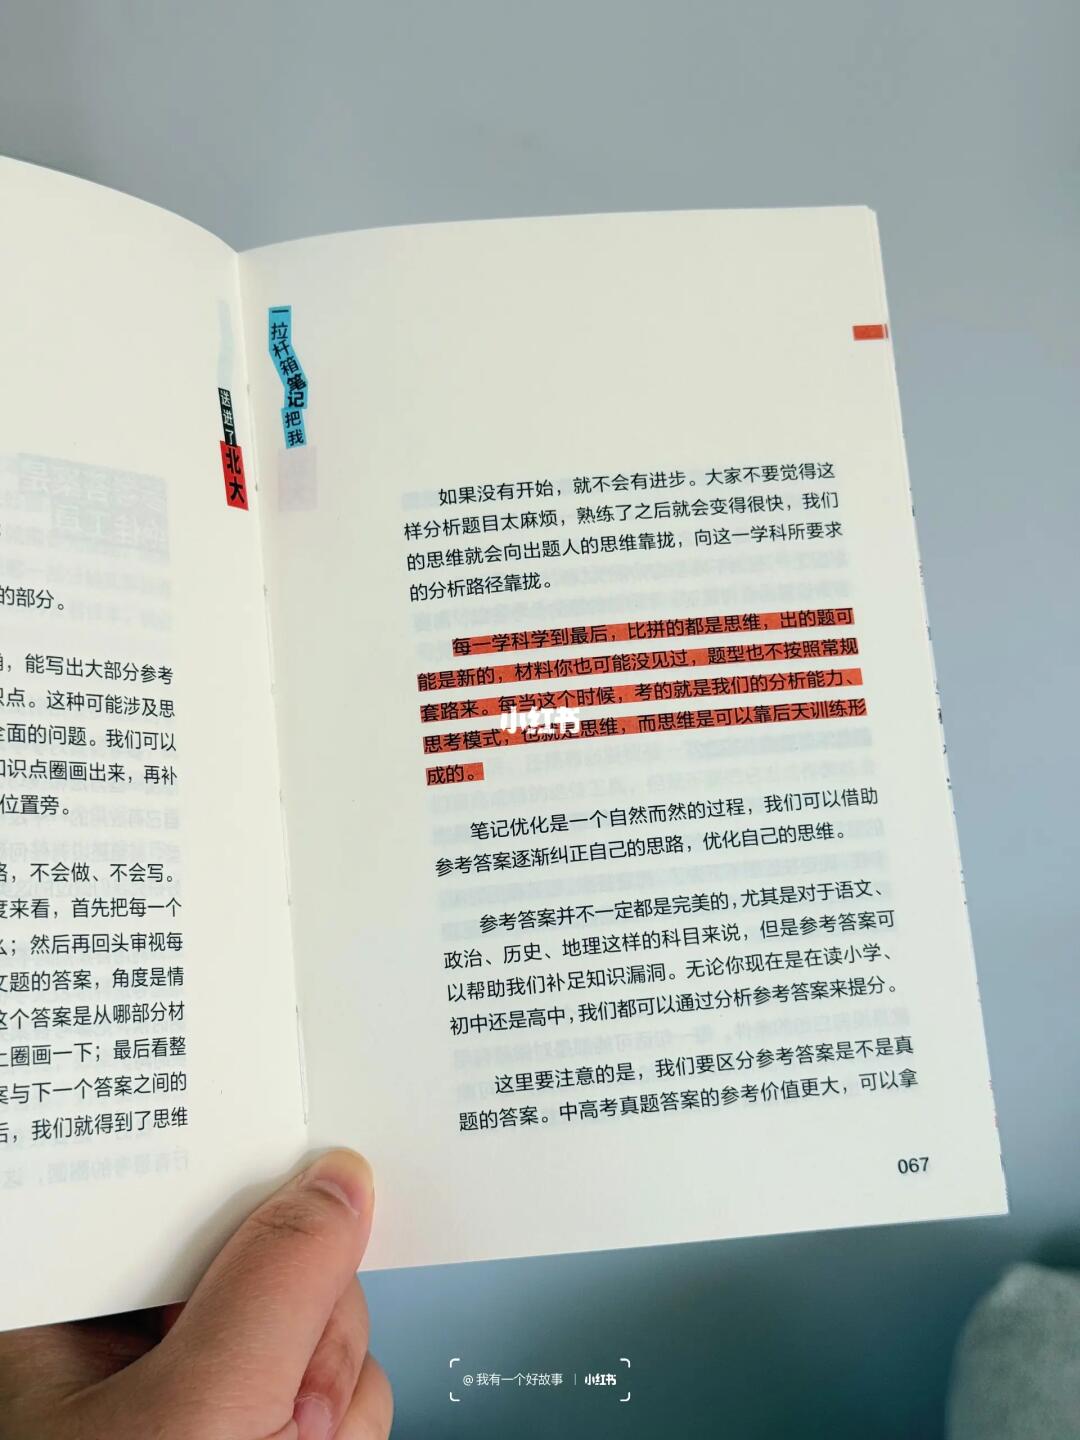 送进了
北大
的部分。
能写出大部分参考
识点。这种可能涉及思
全面的问题。我们可以
知识点圈画出来，再补
位置旁。
不会做、不会写。
度来看，首先把每一个
然后再回头审视每
文题的答案，角度是情
这个答案是从哪部分材
上圈画一下；最后看整
案与下一个答案之间的
后，我们就得到了思维
一拉杆箱笔记把我
如果没有开始，就不会有进步。大家不要觉得这
样分析题目太麻烦，熟练了之后就会变得很快，我们
的思维就会向出题人的思维靠拢，向这一学科所要求
的分析路径靠拢。
每一学科学到最后，比拼的都是思维，出的题可
能是新的，材料你也可能没见过，题型也不按照常规
套路来。每当这个时候，考的就是我们的分析能力、
思考模式，也就是思维，而思维是可以靠后天训练形
成的。
小红书
笔记优化是一个自然而然的过程，我们可以借助
参考答案逐渐纠正自己的思路，优化自己的思维。
参考答案并不一定都是完美的，尤其是对于语文、
政治、历史、地理这样的科目来说，但是参考答案可
以帮助我们补足知识漏洞。无论你现在是在读小学、
初中还是高中，我们都可以通过分析参考答案来提分。
这里要注意的是，我们要区分参考答案是不是真
题的答案。中高考真题答案的参考价值更大，可以拿
067
@我有一个好故事 | 小红书